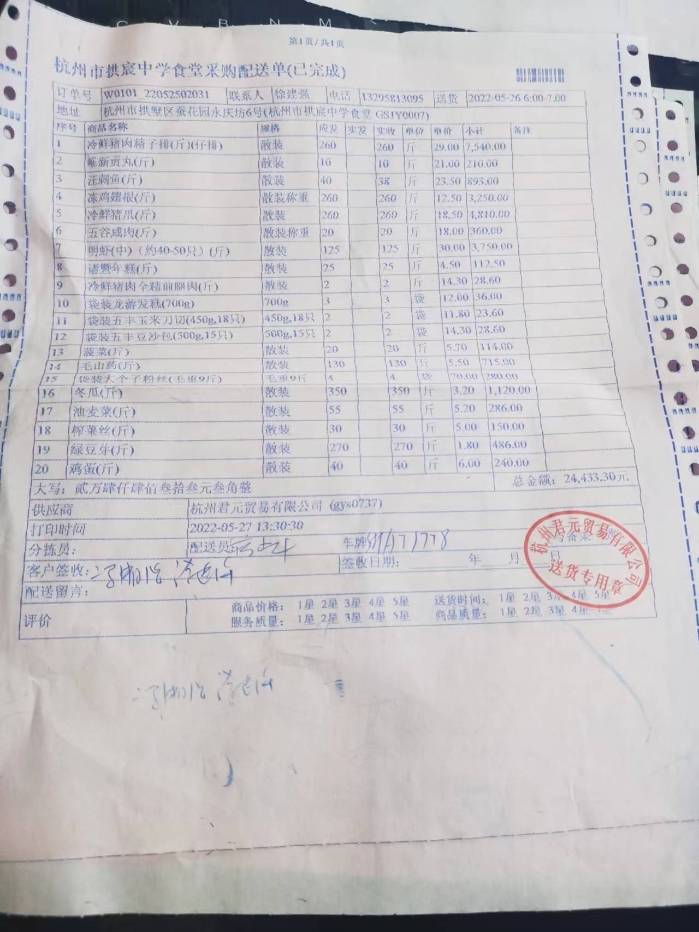 第1页/共1页
杭州市拱宸中学食堂采购配送单(已完成)
订单号 W0101_22052502031 联系人 徐建强 电话 13295813095 送货 2022-05-26 6:00-7:00
地址 杭州市拱墅区蚕花园永庆坊6号(杭州市拱宸中学食堂 (GSJY0007)
序号 商品名称 规格 应发 实发 实收 单位 单价 小计 备注
1 冷鲜猪肉精子排(斤)(仔排) 散装 260 260 斤 29.00 7,540.00
2 贡丸(斤) 散装 10 10 斤 21.00 210.00
3 汪刺鱼(斤) 散装 40 38 斤 23.50 893.00
4 冻鸡翅根(斤) 散装称重 260 260 斤 12.50 3,250.00
5 冷鲜猪爪(斤) 散装 260 260 斤 18.50 4,810.00
6 五谷咸肉(斤) 散装称重 20 20 斤 18.00 360.00
7 明虾(中)（约40-50只）(斤) 散装 125 125 斤 30.00 3,750.00
8 诸暨年糕(斤) 散装 25 25 斤 4.50 112.50
9 冷鲜猪肉全精前腿肉(斤) 散装 2 2 斤 14.30 28.60
10 袋装龙游发糕(700g) 700g 3 3 袋 12.00 36.00
11 袋装五丰玉米刀切(450g,18只) 450g,18只 2 2 袋 11.80 23.60
12 袋装五丰豆沙包(500g,15只) 500g,15只 2 2 袋 14.30 28.60
13 菠菜(斤) 散装 20 20 斤 5.70 114.00
14 毛山药(斤) 散装 130 130 斤 5.50 715.00
15 袋装大个子粉丝(毛重9斤) 毛重9斤 4 4 袋 70.00 280.00
16 冬瓜(斤) 散装 350 350 斤 3.20 1,120.00
17 油麦菜(斤) 散装 55 55 斤 5.20 286.00
18 榨菜丝(斤) 散装 30 30 斤 5.00 150.00
19 绿豆芽(斤) 散装 270 270 斤 1.80 486.00
20 鸡蛋(斤) 散装 40 40 斤 6.00 240.00
大写: 贰万肆仟肆佰叁拾叁元叁角整 总金额: 24,433.30元
供应商 杭州君元贸易有限公司 (gys0737)
打印时间 2022-05-27 13:30:30
分拣员: 配送员 车牌
客户签收: 签收日期: 年 月 日
配送留言:
评价 商品价格: 1星 2星 3星 4星 5星 送货时间: 1星 2星 3星 4星 5星
服务质量: 1星 2星 3星 4星 5星 商品质量: 1星 2星 3星 4星 5星
杭州君元贸易有限公司
送货专用章